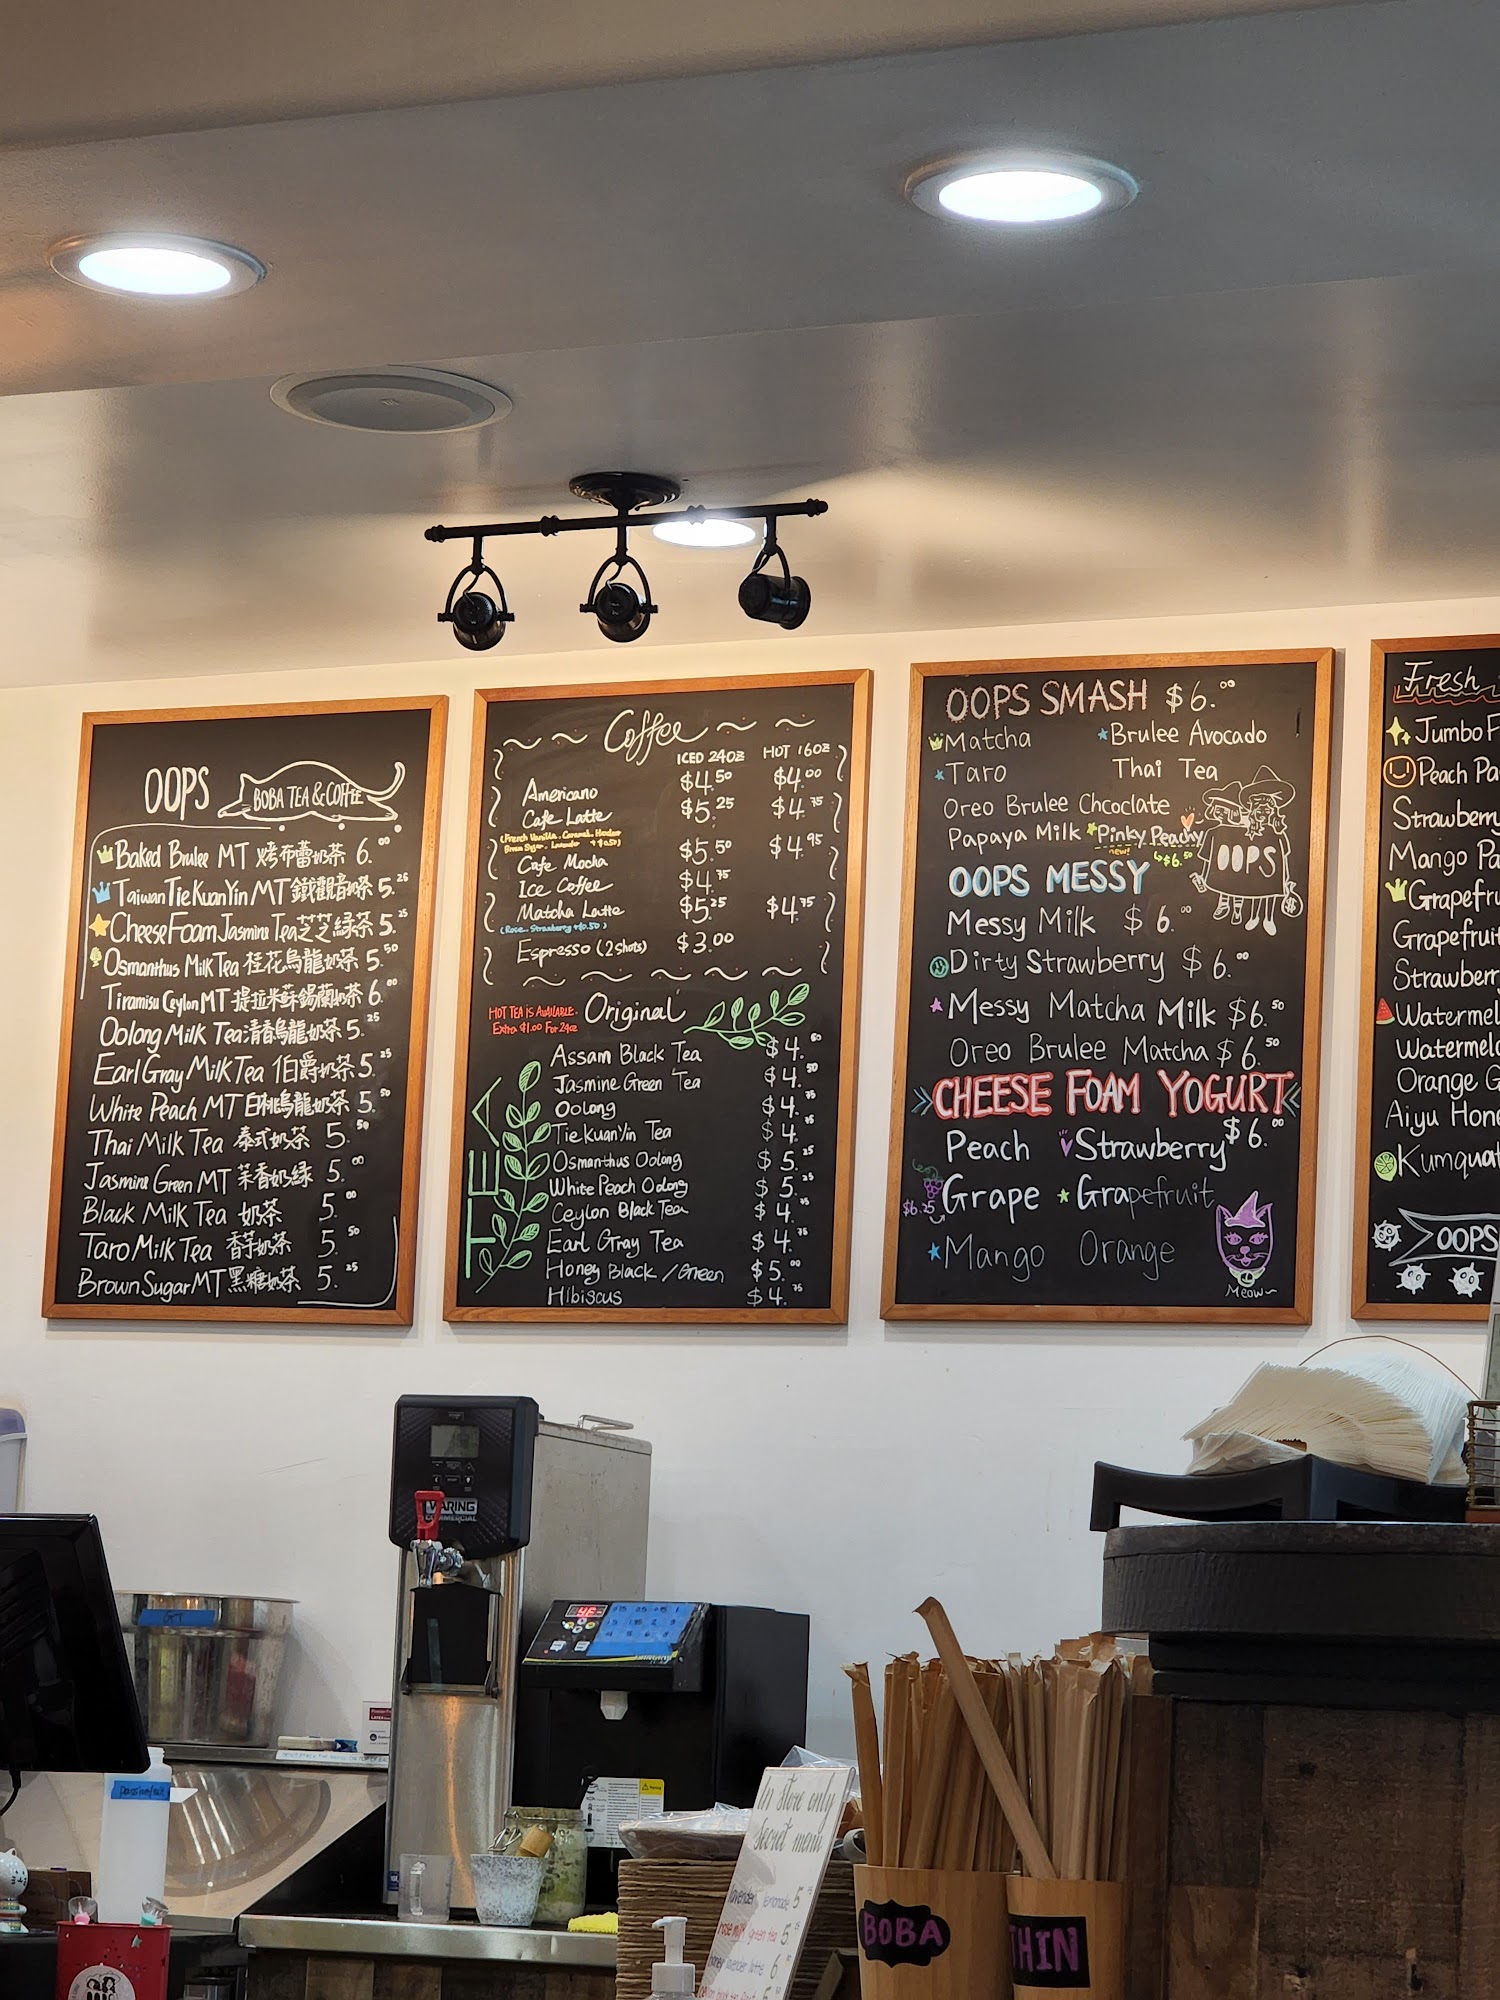 OOPS BOBA TEA & COFFEE
Baked Brulee MT 烤布蕾奶茶 6.00
Taiwan Tie Kuan Yin MT 鐵觀音奶茶 5.25
Cheese Foam Jasmine Tea 芝芝綠茶 5.25
Osmanthus Milk Tea 桂花烏龍奶茶 5.50
Tiramisu Ceylon MT 提拉米蘇錫蘭奶茶 6.00
Oolong Milk Tea 清香烏龍奶茶 5.25
Earl Gray Milk Tea 伯爵奶茶 5.25
White Peach MT 白桃烏龍奶茶 5.50
Thai Milk Tea 泰式奶茶 5.50
Jasmine Green MT 茉香奶綠 5.00
Black Milk Tea 奶茶 5.00
Taro Milk Tea 香芋奶茶 5.50
Brown Sugar MT 黑糖奶茶 5.25
Coffee
ICED 24OZ HOT 16OZ
Americano $4.50 $4.00
Cafe Latte $5.25 $4.75
(French Vanilla, Caramel, Hazelnut
Brown Sugar, Lavender +$0.50)
Cafe Mocha $5.50 $4.95
Ice Coffee $4.75
Matcha Latte $5.25 $4.75
(Rose, Strawberry +$0.50)
Espresso (2 shots) $3.00
HOT TEA IS AVAILABLE
Extra $1.00 For 24oz
Original
TEA
Assam Black Tea $4.50
Jasmine Green Tea $4.50
Oolong $4.75
Tie Kuan Yin Tea $4.75
Osmanthus Oolong $5.25
White Peach Oolong $5.25
Ceylon Black Tea $4.75
Earl Gray Tea $4.75
Honey Black / Green $5.00
Hibiscus $4.75
OOPS SMASH $6.00
Matcha Brulee Avocado
Taro Thai Tea
Oreo Brulee Chcoclate
Papaya Milk Pinky Peachy
new! $6.50
OOPS
OOPS MESSY
Messy Milk $6.00
Dirty Strawberry $6.00
Messy Matcha Milk $6.50
Oreo Brulee Matcha $6.50
CHEESE FOAM YOGURT
$6.00
Peach Strawberry
$6.25 Grape Grapefruit
Mango Orange
Meow~
Fresh
Jumbo F
Peach Pa
Strawberry
Mango Pa
Grapefru
Grapefruit
Strawberry
Watermel
Watermelo
Orange G
Aiyu Hone
Kumquat
OOPS
WARING
COMMERCIAL
passionfruit
In store only
secret menu
lavender lemonade 5
rose milk green tea 5
honey lavender latte 6
BOBA
THIN